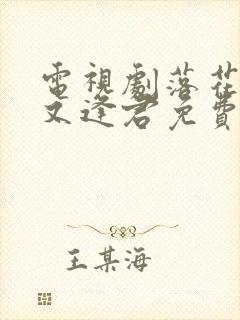 電視劇落花
又逢君免費
王某海